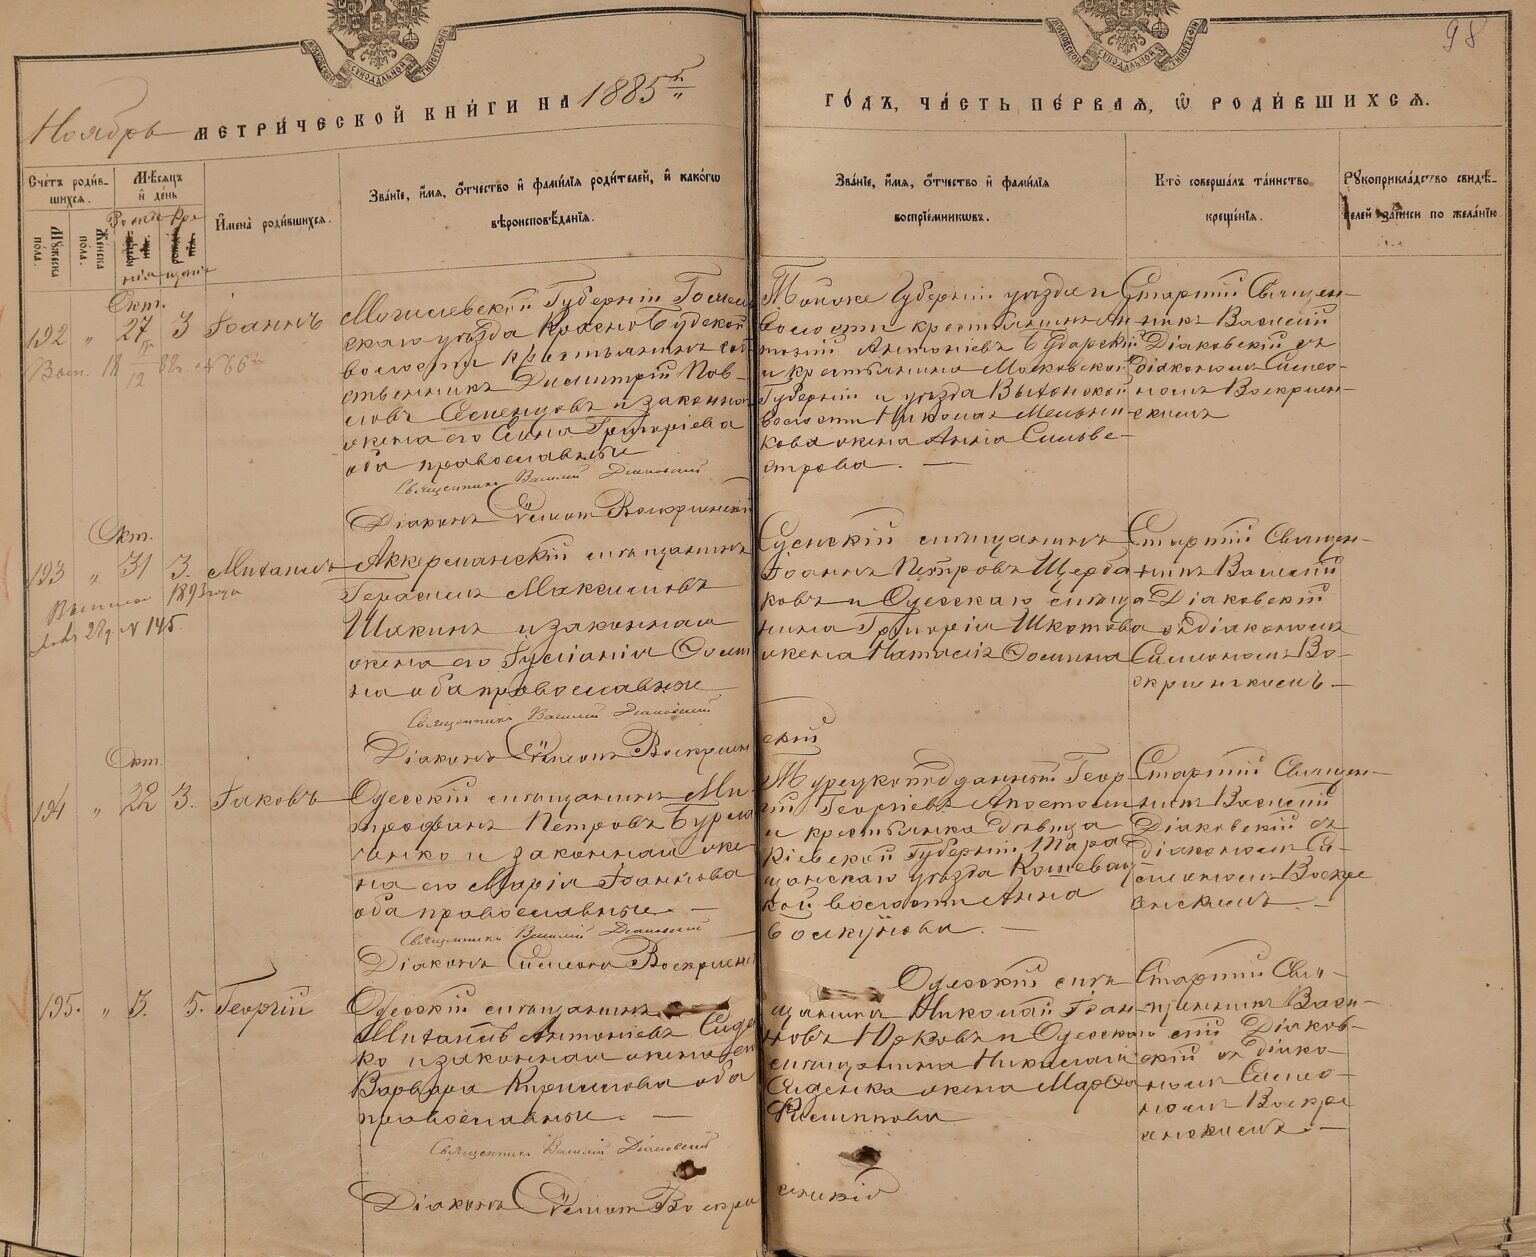 МОСКОВСКОЙ СѴНОДАЛЬНОЙ ТИПОГРАФІИ
МОСКОВСКОЙ СѴНОДАЛЬНОЙ ТИПОГРАФІИ
98
Ноябрь МЕТРИ́ЧЕСКОЙ КНИ́ГИ НА 1885й
ГО́ДЪ, ЧА́СТЬ ПЕ́РВАЯ, Ѡ РОДИ́ВШИХСЯ.
Сче́тъ роди́в-
шихся.
Мꙋ́жеска по́ла.
Же́нска по́ла.
Мѣ́сяцъ и҆ де́нь
И҆мена̀ роди́вшихся.
Зва́нїе, и҆́мя, ѻ҆́тчество и҆ фами́лїя роди́телей, и҆ како́гѡ
вѣроисповѣ́данїя.
Зва́нїе, и҆́мя, ѻ҆́тчество и҆ фами́лїя
воспрїе́мникωвъ.
Кто̀ соверша́лъ та́инство
креще́нїя.
Рꙋкоприкла́дство свидѣ́-
телей за́писи по жела́нїю
192 " Окт. 27 3 Іоаннъ
Могилевской Губерніи Гомель
скаго уѣзда Красно Будской
волости крестьянинъ соб
ственникъ Димитрій Пав-
ловъ и законная
жена его Григоріева
оба православные
Священникъ Василій Діаковский
Діаконъ Симеонъ Воскресенскій
Тойже Губерніи уѣзда и
волости крестьянинъ Ан
тоній Антоніевъ
и крестьянина Московской
Губерніи и уѣзда
волости Николая Мельни
кова жена Анна Сильве-
строва. —
Старшій Священ-
никъ Василій
Діаковский съ
діакономъ Симео-
номъ Воскресен-
скимъ
193 " Окт. 31 3. Михаилъ
1893 года
28 № 145
Аккерманскій мѣщанинъ
Герасимъ Максимовъ
Шакинъ и законная
жена его Іуліанія
на оба православные
Священникъ Василій Діаковский
Діаконъ Симеонъ Воскресен
скій
мѣщанинъ
Іоаннъ Петровъ Щерба
ковъ и Одесскаго мѣща
нина Григорія Шкотова
жена Наталія
Старшій Священ-
никъ Василій
Діаковский
съ діакономъ
Симеономъ Во-
скресенскимъ. —
194 " Окт. 22 3. Іаковъ
Одесскій мѣщанинъ Ми-
трофанъ Петровъ Бурла
ченко и законная же-
на его Марія Іоаннова
оба православные. —
Священникъ Василій Діаковский
Діаконъ Симеонъ Воскресенс
Турецкоподданный Геор
гій Георгіевъ Апостоли
и крестьянка дѣвица
Кіевской Губерніи Тара
щанскаго уѣзда Кошеват
кой волости Анна
Болкунова. —
Старшій Священ-
никъ Василій
Діаковский съ
діакономъ Си-
меономъ Воскре
сенскимъ. —
195. " 5. 5. Георгій
Одесскій мѣщанинъ
Михаилъ Антоніевъ Сиде
ко и законная жена его
Варвара Кириллова оба
православные. —
Священникъ Василій Діаковский
Діаконъ Симеонъ Воскре
сенскій
Одесскій мѣ
щанинъ Николай Иван
новъ Юрковъ и Одесскаго
мѣщанина Николая
Сиденка жена Марѳа
Филиппова
Старшій Свя-
щенникъ Васи-
лій Діаков-
скій съ діако-
номъ Симео-
номъ Воскре
сенскимъ. —